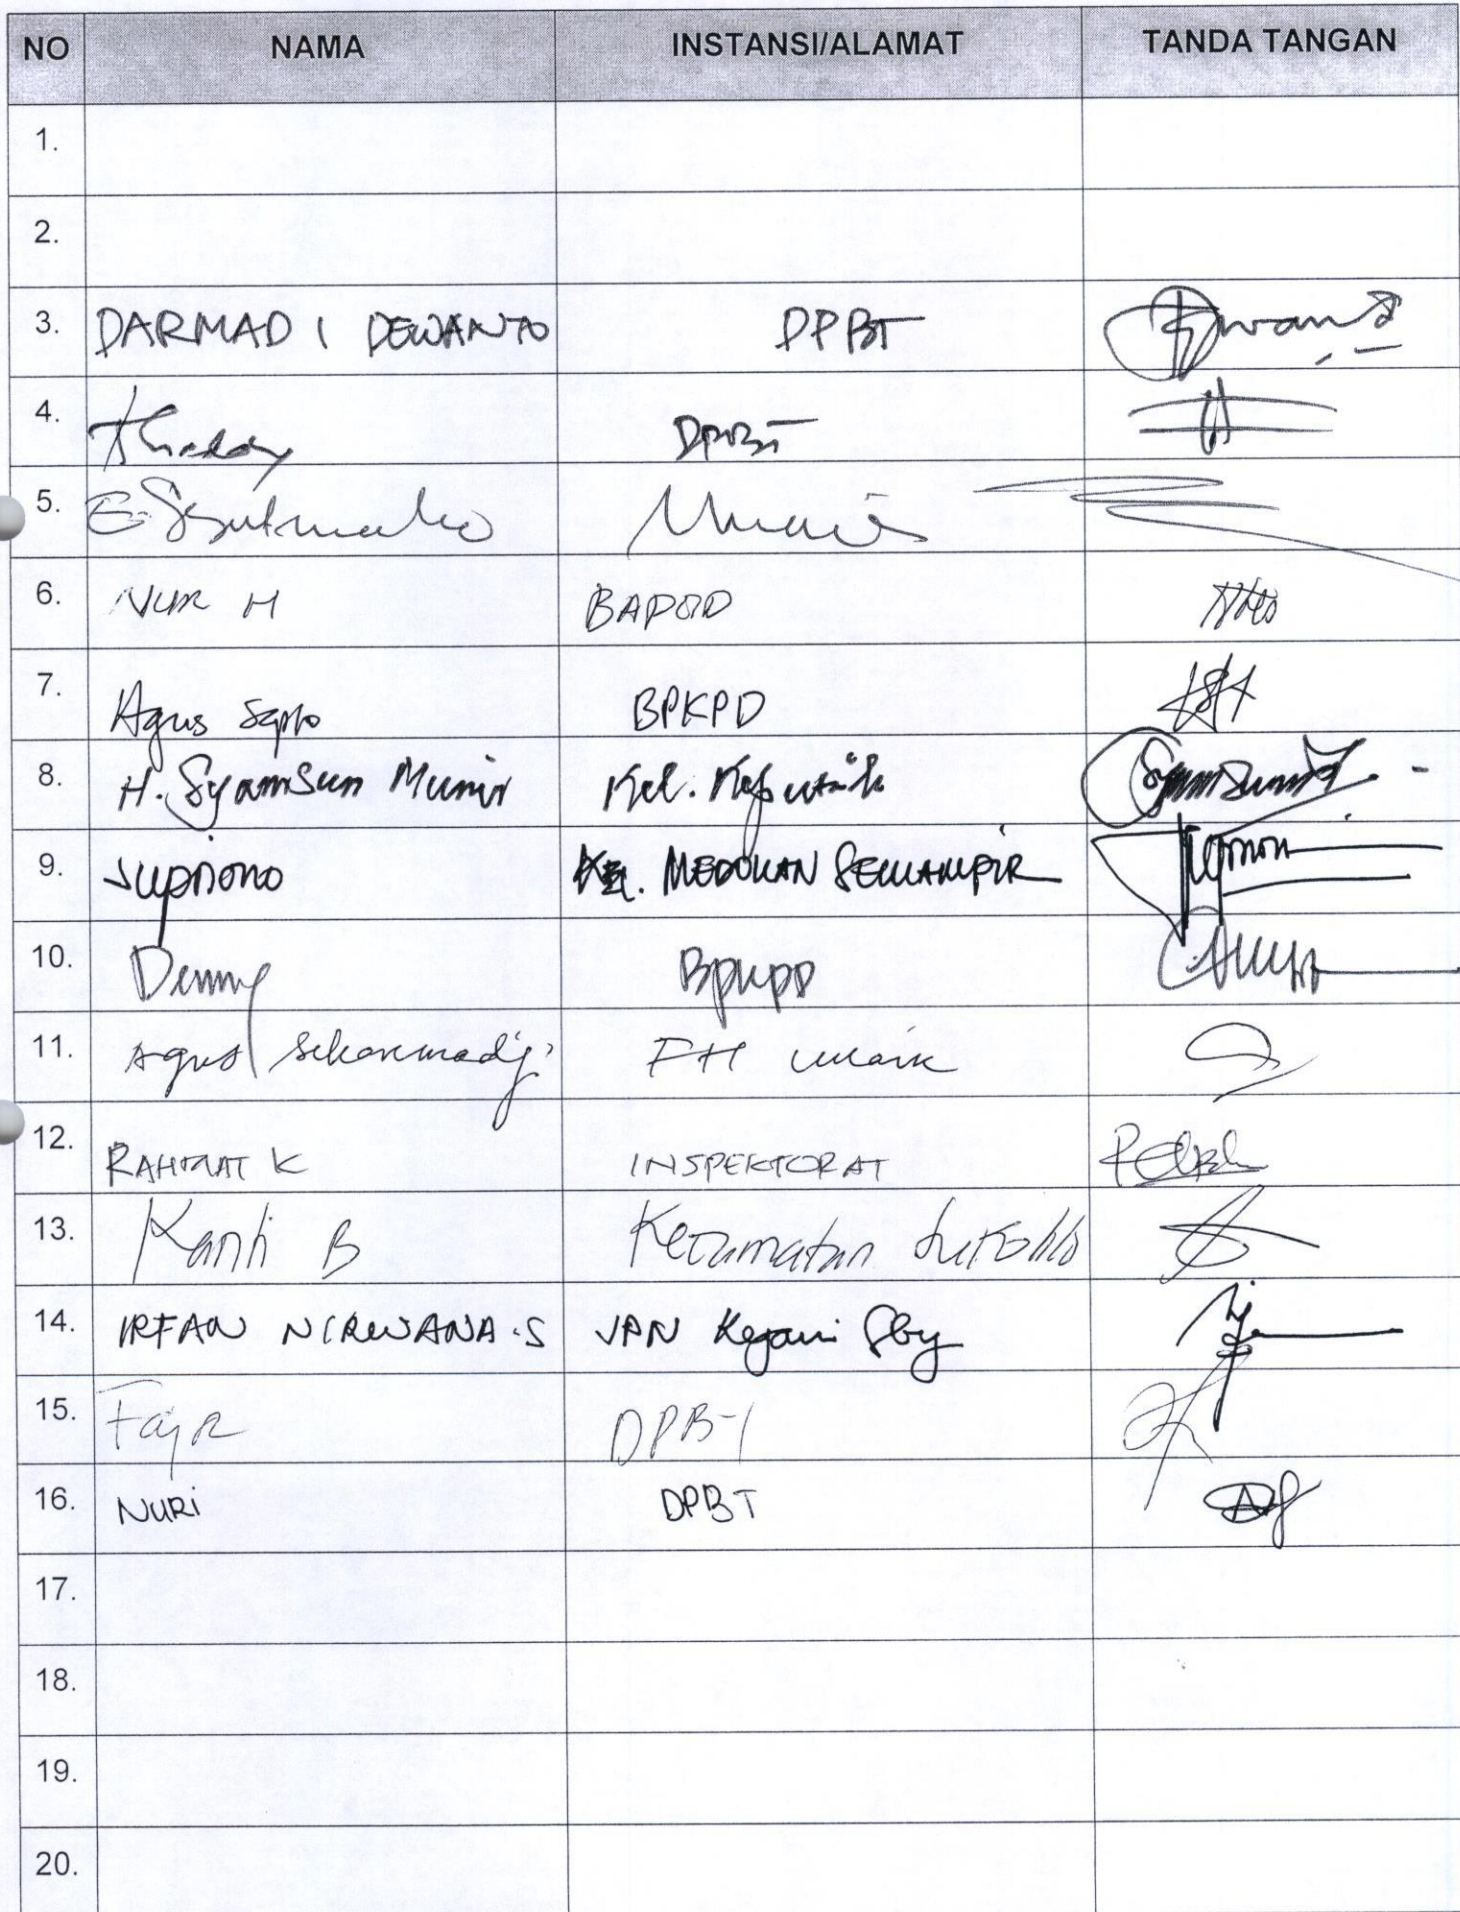 NO NAMA INSTANSI/ALAMAT TANDA TANGAN
1.
2.
3. DARMADI DEWANTO DPBT
4. Theddy DPBT
5.
6. NUR H
7. Agus Sapto BPKPD
8. H. Syamsun Munir Kel. Keputih
9. Supriono Kel. MEDOKAN SEMAMPIR
10. Denny BPKPD
11. Agus Sekarmadji FH Unair
12. RAHMAT K INSPEKTORAT
13. Kanti B Kecamatan Sukolilo
14. IRFAN NIRWANA.S JPN Kejari Sby
15. Fajr DPBT
16. NURI DPBT
17.
18.
19.
20.